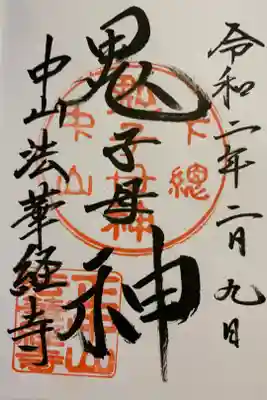 令和二年二月九日
鬼子母神
中山法華経寺
下總
中山
鬼子母神